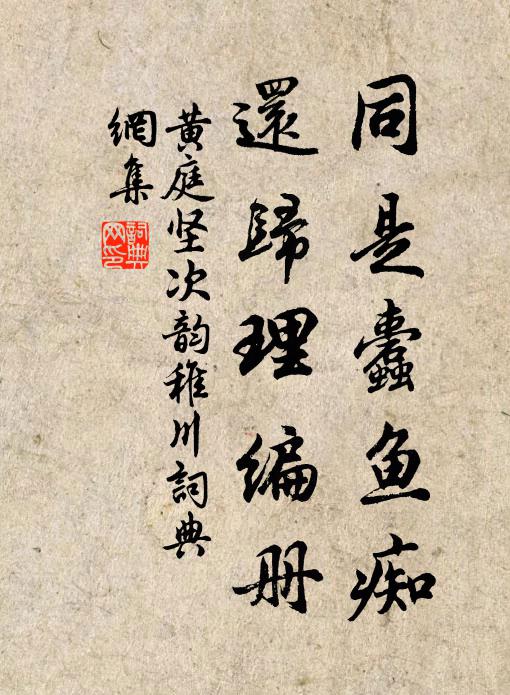 同是蠹鱼痴
還歸理编册
黄庭坚次韵稚川詞典
網集
詞典
网印